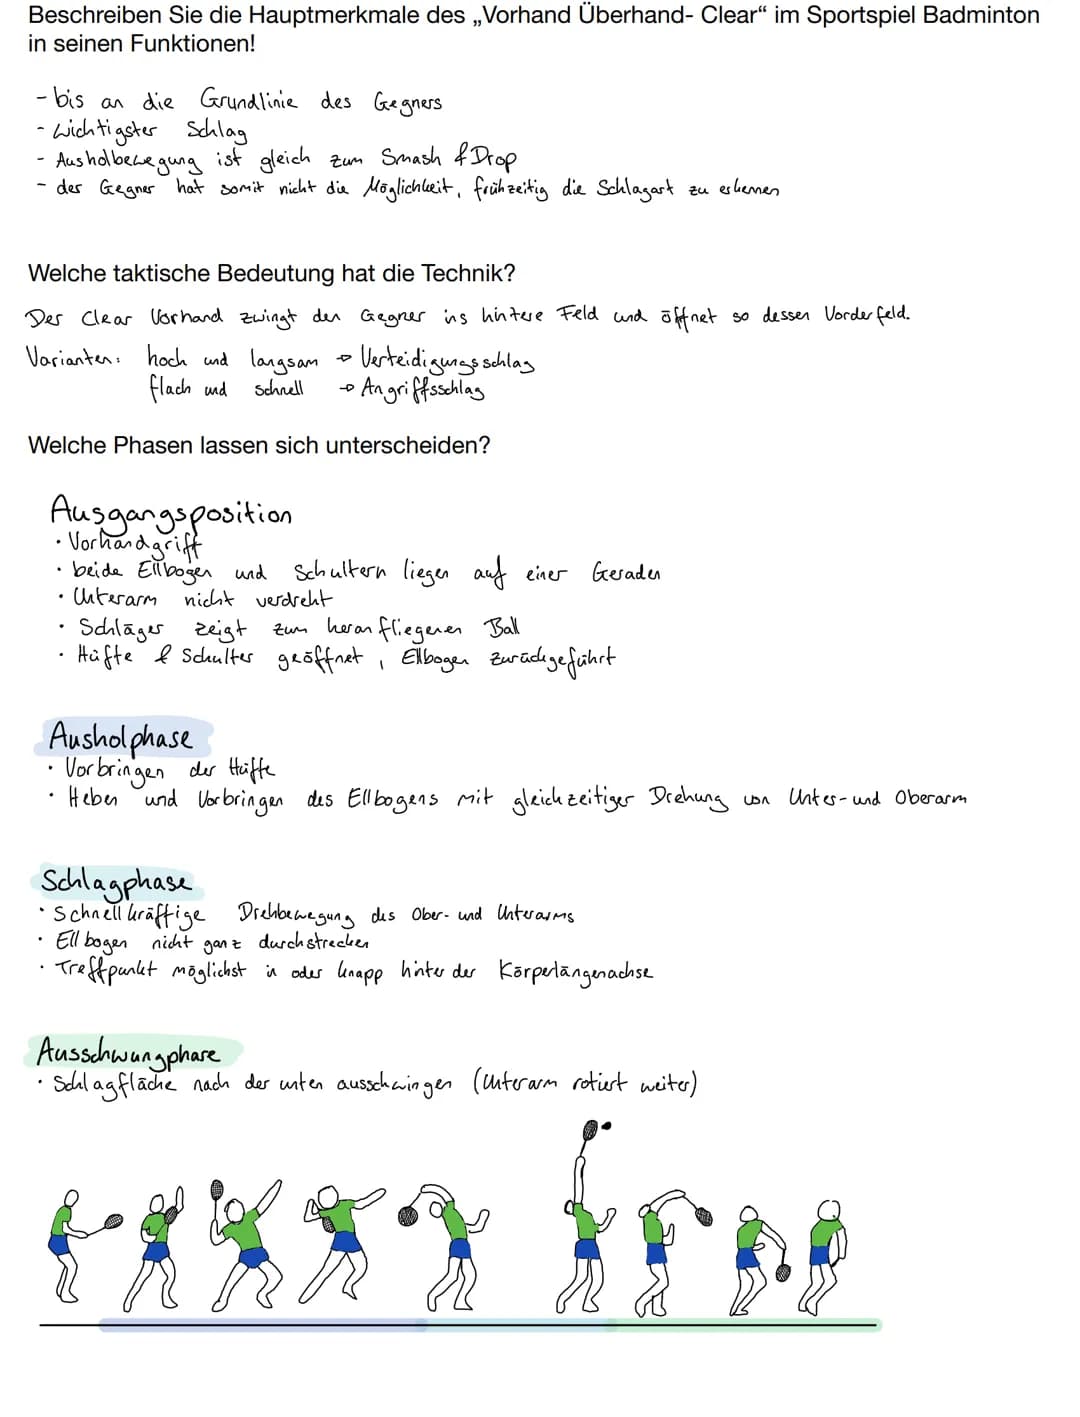 Beschreiben Sie die Hauptmerkmale des „Vorhand Überhand- Clear“ im Sportspiel Badminton
in seinen Funktionen!
- bis an die Grundlinie des Gegners
- wichtigster Schlag
- Ausholbewegung ist gleich zum Smash & Drop
- der Gegner hat somit nicht die Möglichkeit, frühzeitig die Schlagart zu erkennen
Welche taktische Bedeutung hat die Technik?
Der Clear Vorhand zwingt den Gegner ins hintere Feld und öffnet so dessen Vorderfeld.
Varianten: hoch und langsam → Verteidigungsschlag
flach und schnell → Angriffsschlag
Welche Phasen lassen sich unterscheiden?
Ausgangsposition
• Vorhandgriff
• beide Ellbogen und Schultern liegen auf einer Geraden
• Unterarm nicht verdreht
• Schläger zeigt zum heranfliegenen Ball
• Hüfte & Schulter geöffnet, Ellbogen zurückgeführt
Ausholphase
• Vorbringen der Hüfte
• Heben und Vorbringen des Ellbogens mit gleichzeitiger Drehung von Unter- und Oberarm
Schlagphase
• Schnellkräftige Drehbewegung des Ober- und Unterarms
• Ellbogen nicht ganz durchstrecken
• Treffpunkt möglichst in oder knapp hinter der Körperlängenachse
Ausschwungphase
• Schlagfläche nach der unten ausschwingen (Unterarm rotiert weiter)